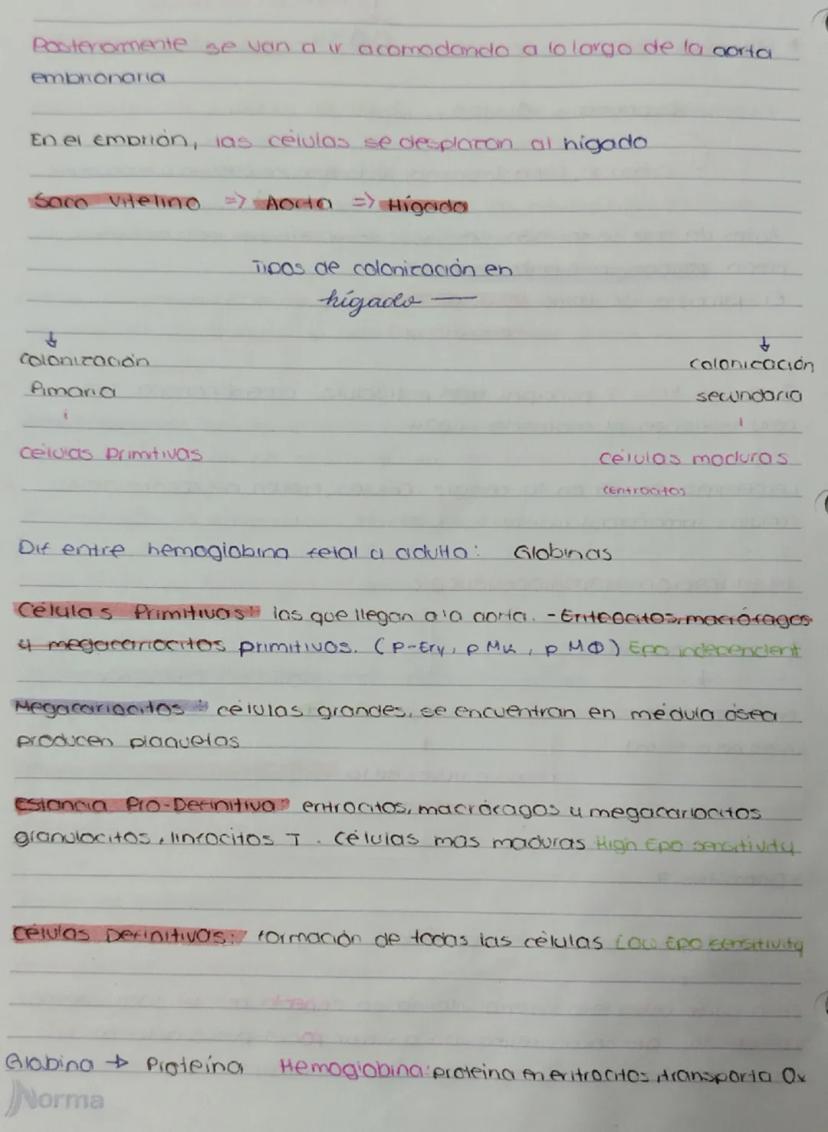 Posteriormente se van a ir acomodando a lo largo de la aorta
embrionaria
En el embrión, las células se desplazan al hígado
Saco vitelino => Aorta => Hígado
Tipos de colonización en
hígado —
↓ ↓
colonización colonización
Primaria secundaria
células primitivas células maduras
eritrocitos
Dif entre hemoglobina fetal a adulta: Globinas
Células Primitivas: las que llegan a la aorta. - Eritrocitos, macrófagos
y megacariocitos primitivos. (P-Ery, P MK, P MΦ) Epo independent
Megacariocitos: células grandes, se encuentran en médula ósea
producen plaquetas
Estancia Pro-Definitiva: eritrocitos, macrófagos y megacariocitos
granulocitos, linfocitos T. Células mas maduras High Epo sensitivity
Células Definitivas: formación de todas las células Low Epo sensitivity
Globina → Proteína Hemoglobina: proteína en eritrocitos, transporta Ox
Norma